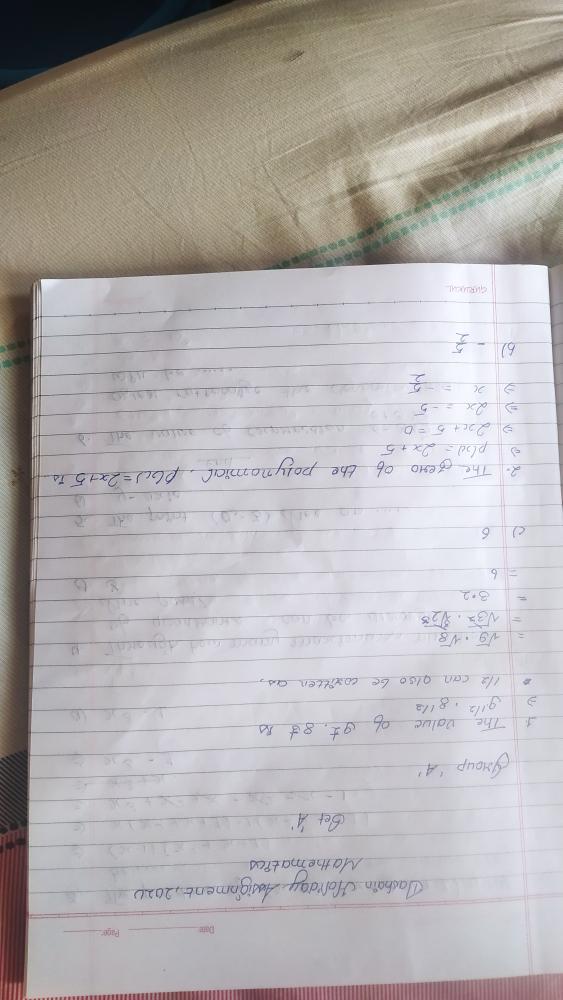 Date: Page:
Dashain Holiday Assignment, 2024
Mathematics
Set 'A'
Group 'A'
1. The value of
⇒ 9 1/2 . 8 1/2
• 1/2 can also be written as,
= √9 . √8
= √3² . ∛2³
= 3·2
= 6
c) 6
2. The zero of the polynomial, p(x) = 2x+5 is
⇒ p(x) = 2x+5
⇒ 2x+5=0
⇒ 2x = -5
⇒ x = -5/2
b) -5/2
GURUKUL